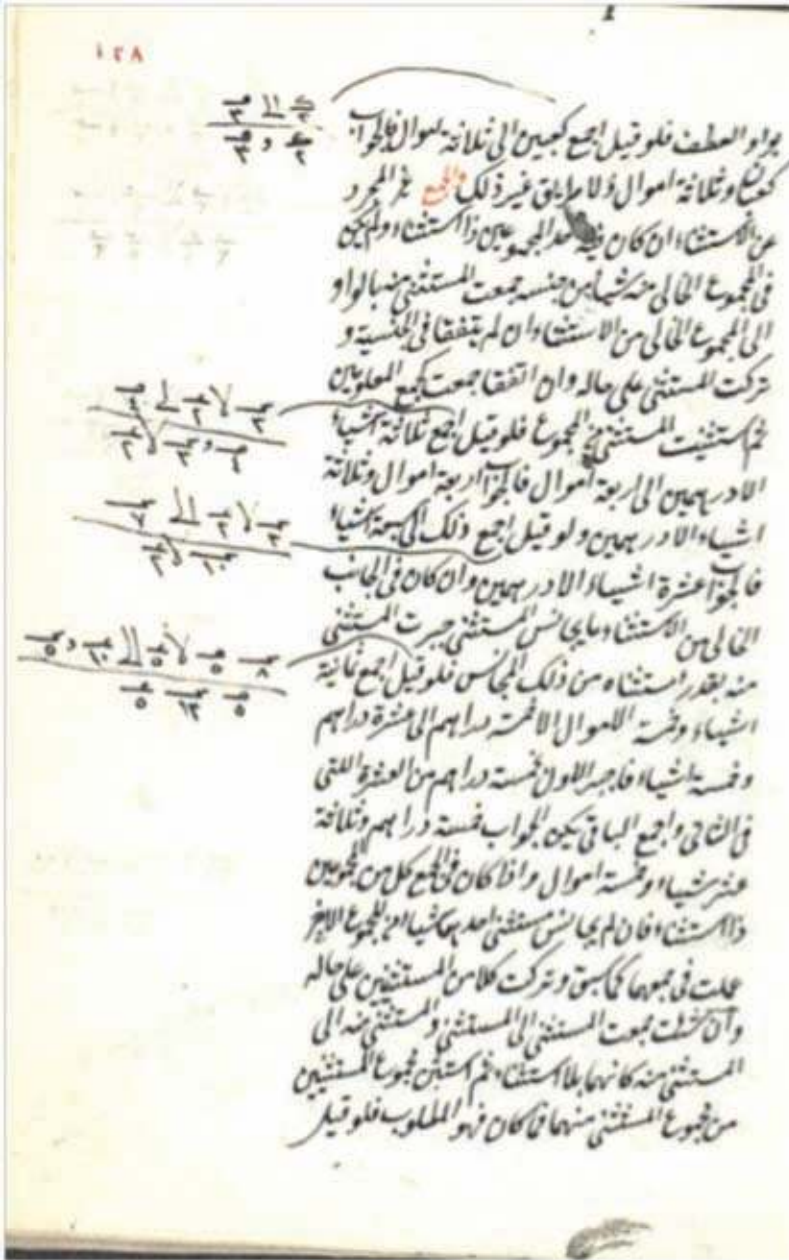 ١٢٨
بواو العطف فلو قيل اجمع كعبين الى ثلاثة اموال فالجواب
كعبان وثلاثة اموال ولا غير ذلك والجمع المجرد
عن الاستثناء ان كان احد المجموعين ذا استثناء ولم يكن
فى المجموع الخالى منه شيا من جنسه جمعت المستثنى منه بالواو
الى المجموع الخالى من الاستثناء ان لم يتفقا فى الجنسية و
تركت المستثنى على حاله وان اتفقا جمعت كجمع المعلومين
ثم استثنيت المستثنى من المجموع فلو قيل اجمع ثلاثة اشياء
الا درهمين الى اربعة اموال فالجواب اربعة اموال وثلاثة
اشياء الا درهمين ولو قيل اجمع ذلك الى سبعة اشياء
فالجواب عشرة اشياء الا درهمين وان كان فى الجانب
الخالى من الاستثناء ما يجانس المستثنى جبرت المستثنى
منه بقدر استثناه من ذلك المجانس فلو قيل اجمع ثمانية
اشياء وخمسة اموال الا خمسة دراهم الى عشرة دراهم
وخمسة اشياء فاجبر الاول بخمسة دراهم من العشرة اللتى
فى الثانى واجمع الباقى يكن الجواب خمسة دراهم وثلاثة
عشر شياء وخمسة اموال واذا كان فى الجمع كل من المجموعين
ذا استثناء فان لم يجانس مستثنى احدهما شيا من المجموع الاخر
عملت فى جمعهما كما سبق وتركت كلا من المستثنيين على حاله
وان شئت جمعت المستثنى الى المستثنى والمستثنى منه الى
المستثنى منه كانهما بلا استثناء ثم استثن مجموع المستثنيين
من مجموع المستثنى منهما فما كان فهو المطلوب فلو قيل